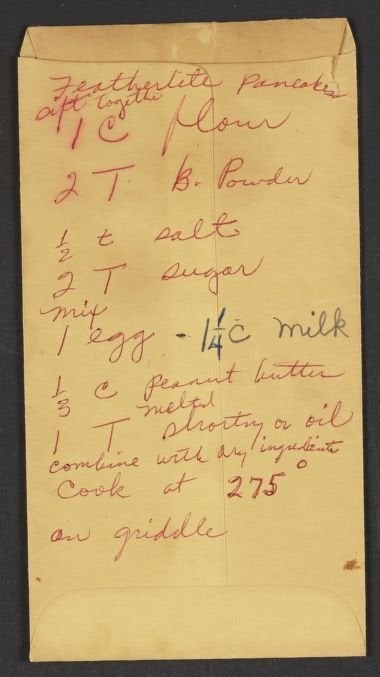 Featherlite Pancakes
Sift together
1 C flour
2 T B. Powder
1/2 t salt
2 T sugar
mix
1 egg - 1 1/4 C milk
1/3 C Peanut butter
melted
1 T shortng or oil
combine with dry ingredients
Cook at 275°
on griddle